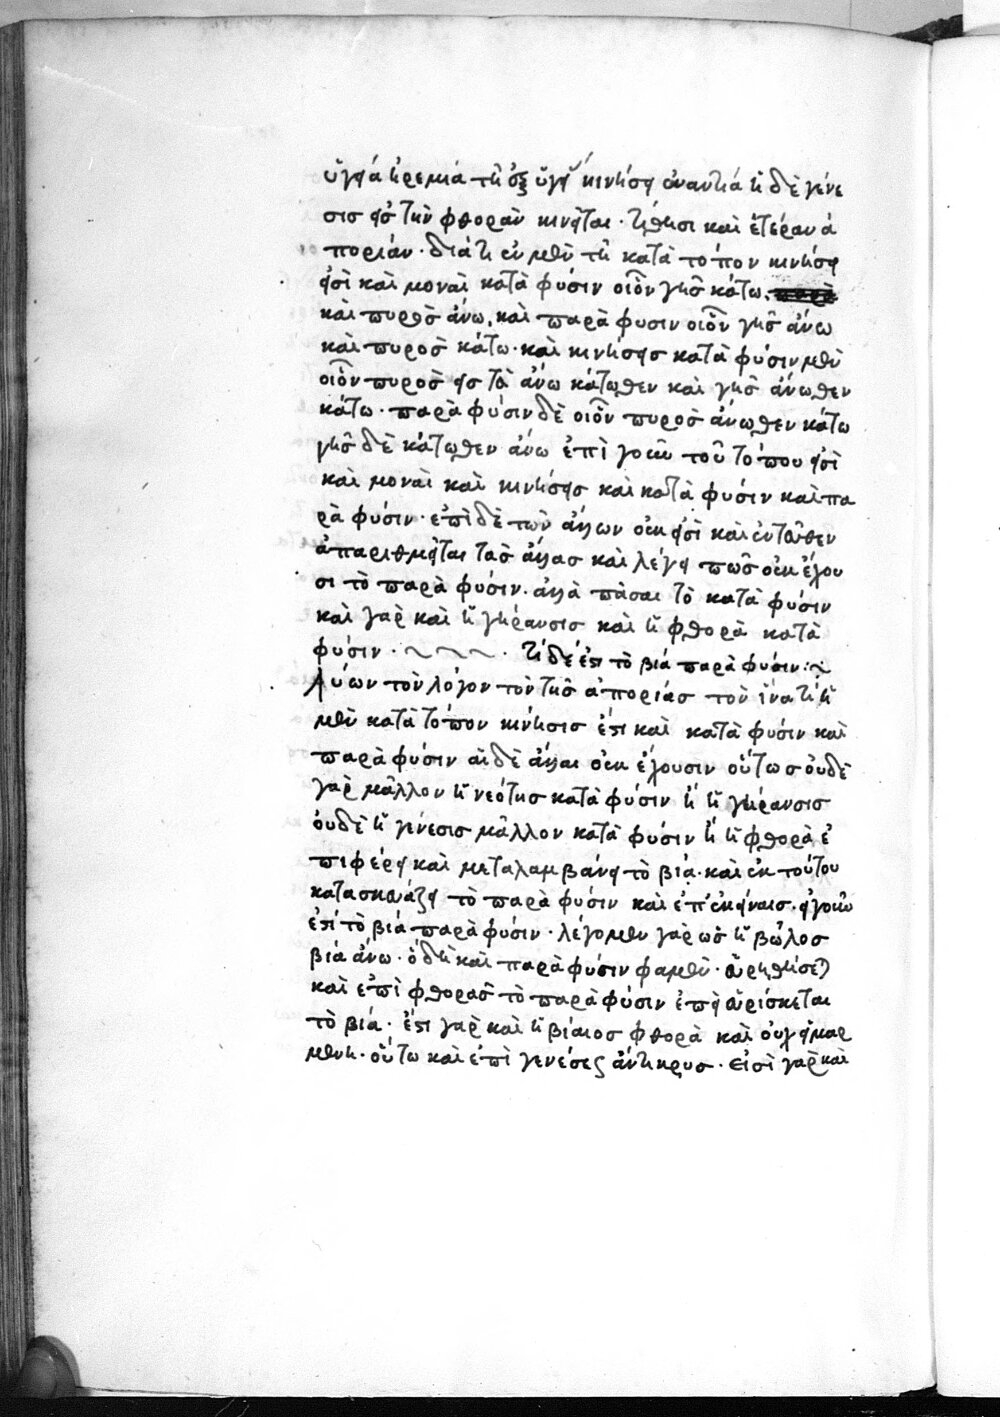 ὑγεία ἠρεμία τῆ ἐξ ὑγείας κινήσει ἐναντία ἡ δὲ γένε
σις εἰς τὴν φθορὰν κινεῖται· τίθησι καὶ ἑτέραν ἀ
πορίαν· διὰ τί ἐν μὲν τῆ κατὰ τόπον κινήσει
εἰσὶ καὶ μοναὶ κατὰ φύσιν οἷον γῆς κάτω,
καὶ πυρὸς ἄνω, καὶ παρὰ φύσιν οἷον γῆς ἄνω
καὶ πυρὸς κάτω· καὶ κινήσεις κατὰ φύσιν μὲν
οἷον πυρὸς εἰς τὰ ἄνω κάτωθεν καὶ γῆς ἄνωθεν
κάτω· παρὰ φύσιν δὲ οἷον πυρὸς ἄνωθεν κάτω
γῆς δὲ κάτωθεν ἄνω ἐπὶ γοῦν τοῦ τόπου εἰσὶ
καὶ μοναὶ καὶ κινήσεις καὶ κατὰ φύσιν καὶ πα
ρὰ φύσιν· ἐπὶ δὲ τῶν ἄλλων οὐκ εἰσὶ καὶ ἐντεῦθεν
ἀπαριθμεῖται τὰς ἄλλας καὶ λέγει πῶς οὐκ ἔχου
σι τὸ παρὰ φύσιν· ἀλλὰ πᾶσαι τὸ κατὰ φύσιν
καὶ γὰρ καὶ ἡ γήρανσις καὶ ἡ φθορὰ κατὰ
φύσιν· τί δέ ἐστι τὸ βία παρὰ φύσιν:~
λύων τὸν λόγον τὸν τῆς ἀπορίας τὸν ἵνα τί ἡ
μὲν κατὰ τόπον κίνησις ἔστι καὶ κατὰ φύσιν καὶ
παρὰ φύσιν αἱ δὲ ἄλλαι οὐκ ἔχουσιν οὕτως οὐδὲ
γὰρ μᾶλλον ἡ νεότης κατὰ φύσιν ἢ ἡ γήρανσις
οὐδὲ ἡ γένεσις μᾶλλον κατὰ φύσιν ἢ ἡ φθορὰ ἐ
πιφέρει καὶ μεταλαμβάνει τὸ βία· καὶ ἐκ τούτου
κατασκευάζει τὸ παρὰ φύσιν καὶ ἐπ' ἐκείναις· εἰ γοῦν
ἐστὶ τὸ βία παρὰ φύσιν· λέγομεν γὰρ ὡς ἡ βῶλος
βία ἄνω· ὃ δὴ καὶ παρὰ φύσιν φαμὲν· εὑρηθήσεται
καὶ ἐπὶ φθορᾶς τὸ παρὰ φύσιν ἐπεὶ εὑρίσκεται
τὸ βία· ἔστι γὰρ καὶ ἡ βίαιος φθορὰ καὶ οὐχ εἱμαρ
μένη· οὕτω καὶ ἐπὶ γενέσεως ἄντικρυς· εἰσὶ γὰρ καὶ